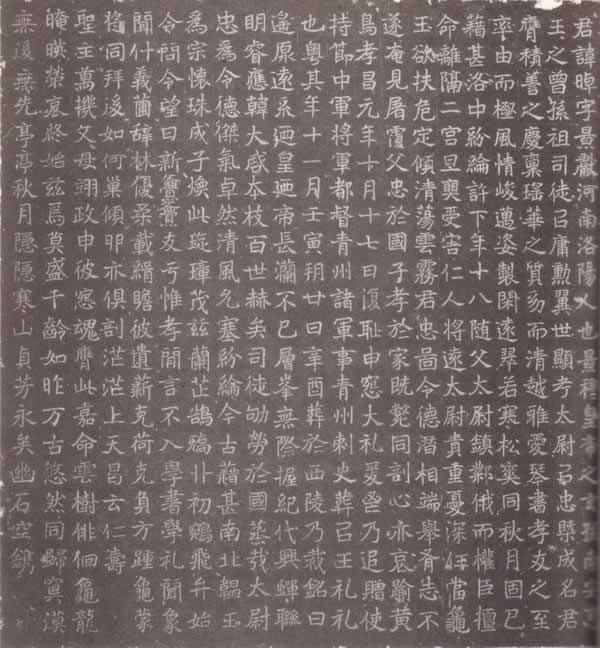 君諱暐字景獻河南洛陽人也景穆皇帝之玄孫南安
王之曾孫祖司徒以庸勳翼世顯考太尉以忠槩成名君
膺積善之慶稟瑤華之質㓜而清越雅愛琴書孝友之至
率由而極風情峻邁姿製閑遠翠若寒松爽同秋月固已
藉甚洛中紛綸許下年十八随父太尉鎮鄴俄而權臣擅
命離隔二宮旦奭受害仁人將遠太尉責重憂深任當龜
玉欲扶危定傾清蕩雲霧君忠啚令德潛相端舉脊志不
遂奄見屠覆父忠於國子孝於家既斃同剖心亦哀踰黃
鳥孝昌元年十月十七日復耻申冤大礼爰啓乃追贈使
持節中軍將軍都督青州諸軍事青州刺史葬以王礼礼
也粵其年十一月壬寅朔廿日辛酉葬於西陵乃裁銘曰
遙原遠系迺皇迺帝長瀾不已層峯無際握紀代興蟬聯
明睿應韓大啓夲枝百世赫矣司徒劬勞於國烝哉太尉
忠為令德傑氣卓然清風允塞紛綸今古藉甚南北韞玉
為宗懷珠成子煥此琁璋茂茲蘭芷鵠丱初鵷飛弁始
令問令望日新亹亹友于惟孝間言不入學書學礼聞象
聞什義菌辭林優柔載緝瞻彼遺薪克荷克負方踵龜蒙
將同拜後如何巢傾卵亦俱剖茫茫上天曷云仁壽
聖主萬機父母翊政申彼冤魂膺此嘉命雲樹俳佪龜龍
晻暎榮哀終始茲焉莫盛千齡如昨万古悠然同歸冥漠
無後無先亭亭秋月隱隱寒山貞芳永矣幽石空鐫